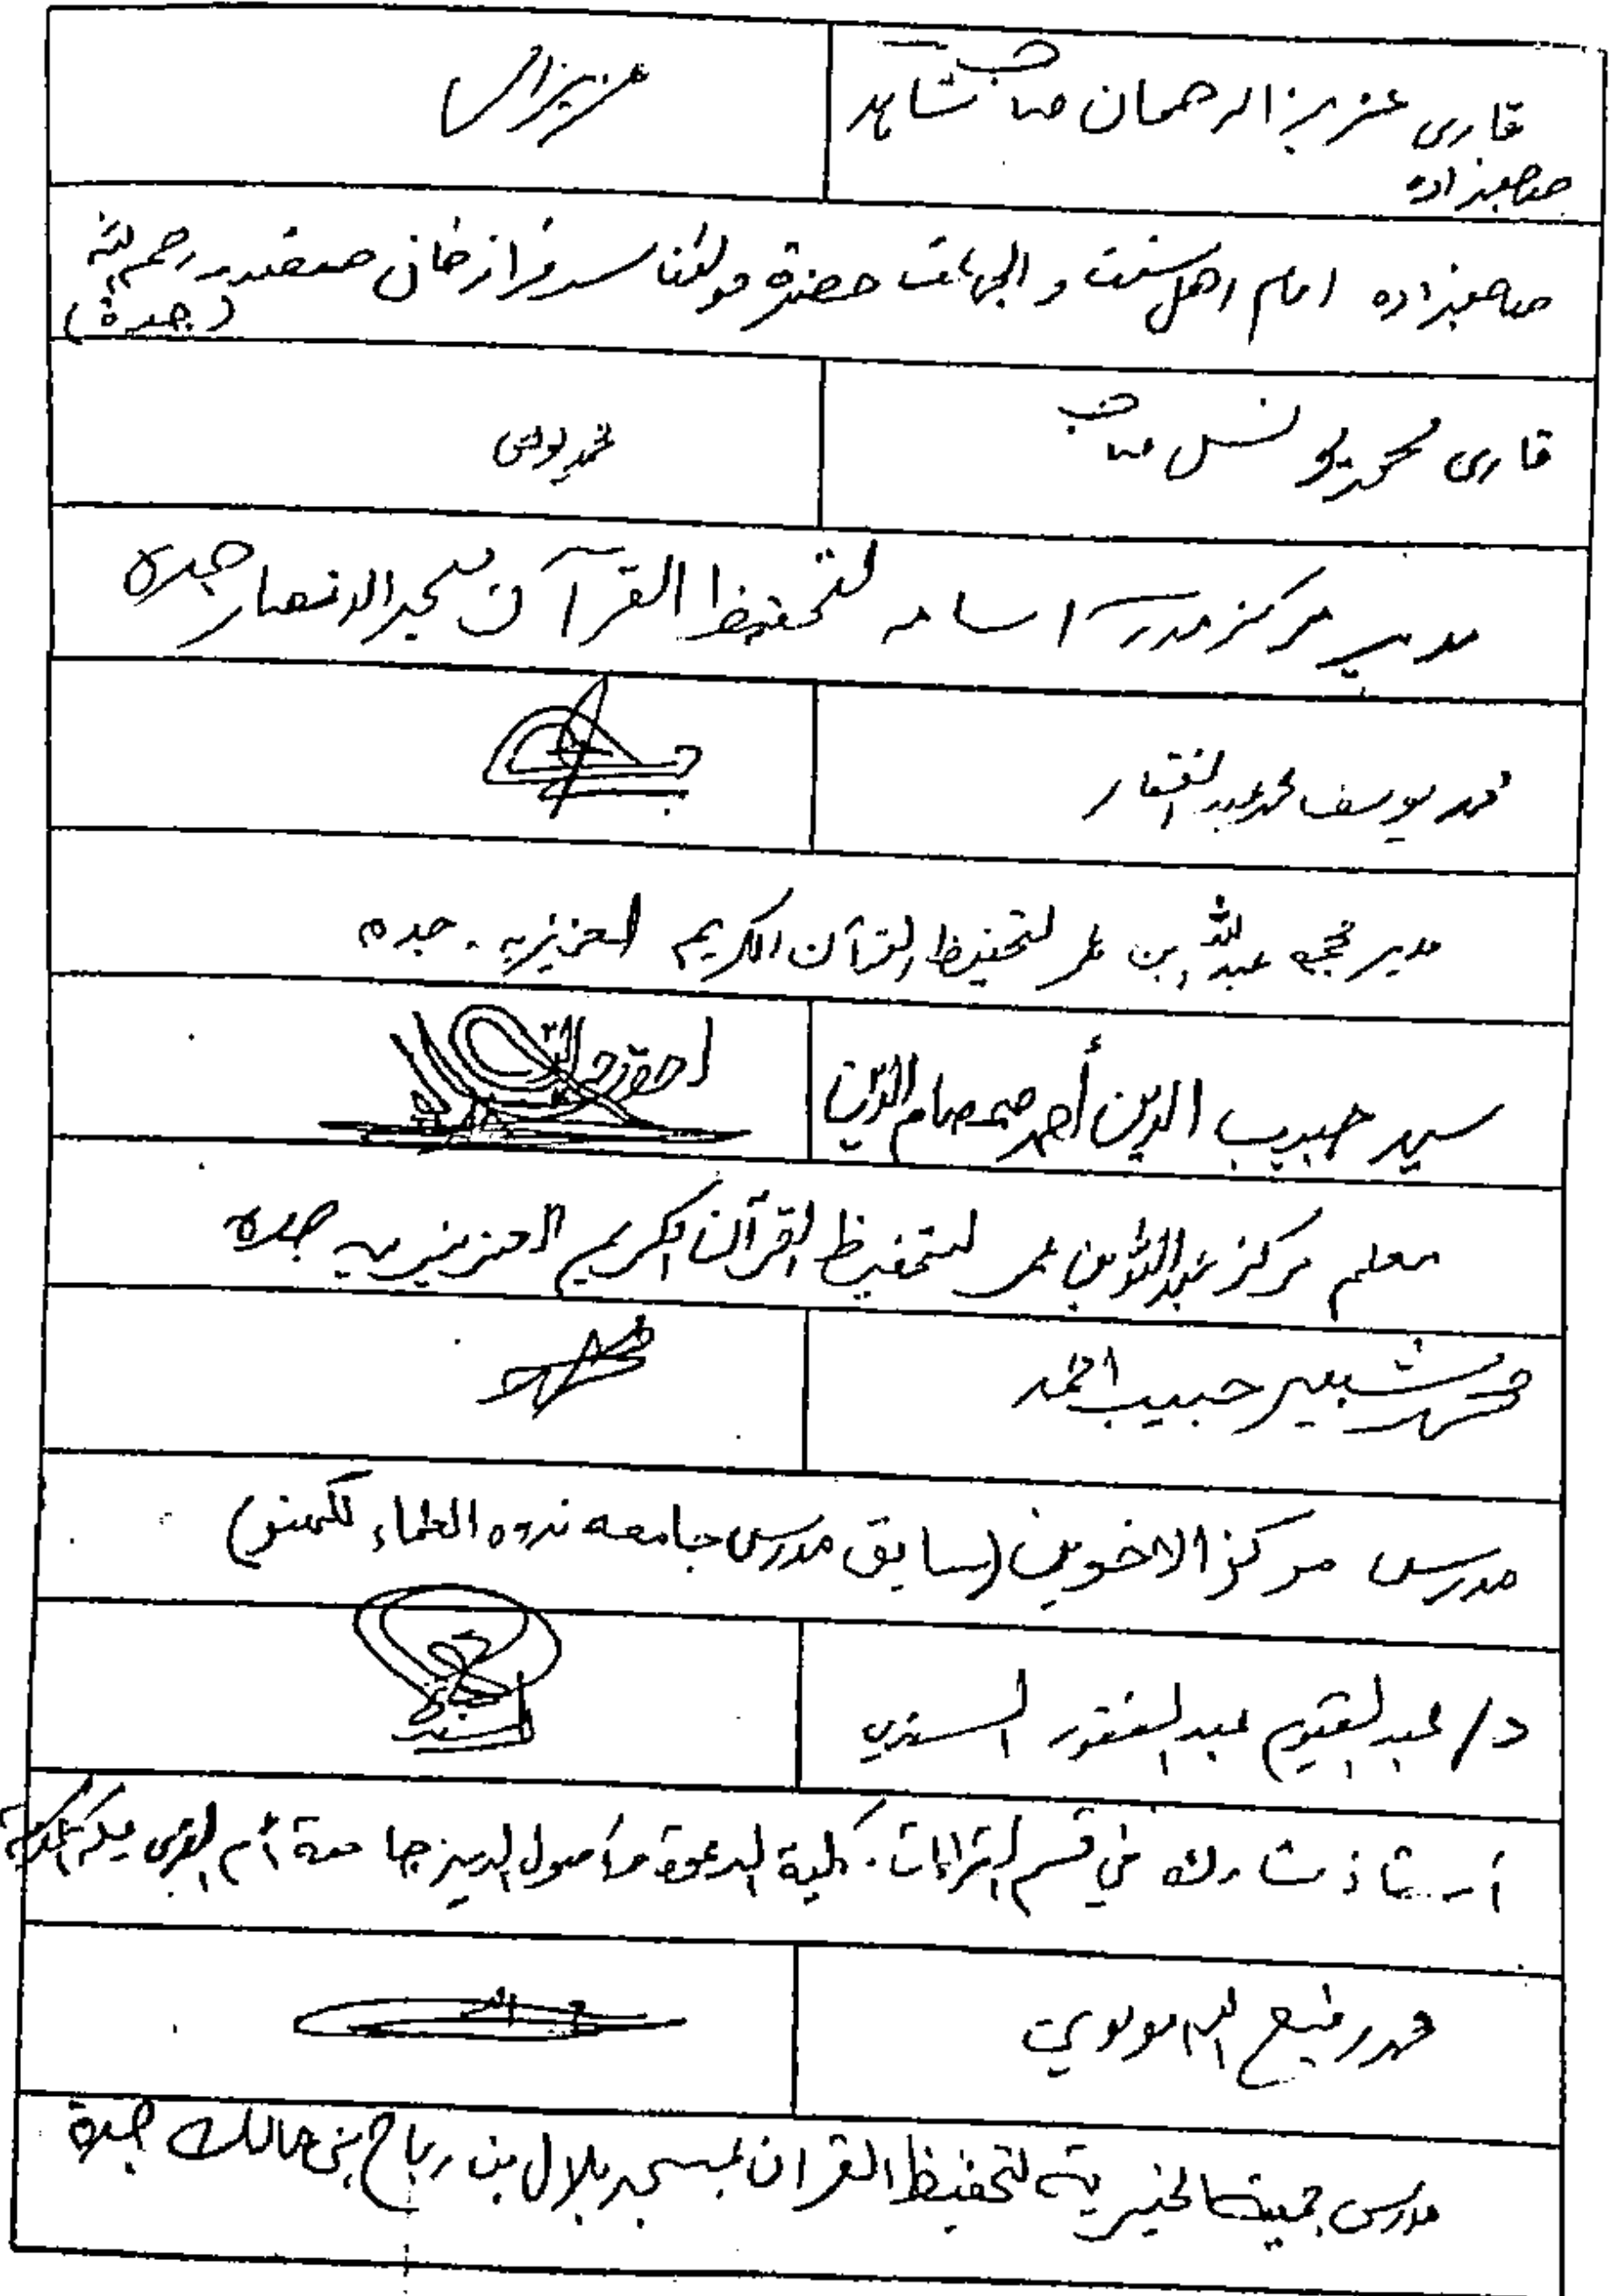 قاری عزیز الرحمان صاحب شاہد
عزیزالر
صاحبزادہ
صاحبزادہ امام اھل سنت و الجماعت حضرۃ مولٰنا سرفراز خان صفدر رحمہ اللہ
(جدۃ)
قاری محمد یونس صاحب
محمد یونس
مدیر مرکز مدرسہ اسامہ لتحفیظ القرآن مسجد الانصار جدہ
محمد یوسف محمد عبد الغفار
مدير مجمع عبد الله ابن عمر لتحفيظ القرآن الكريم العزيزيه . جده
سيد حبيب الدين أحمد صمصام الدين
معلم مركز عبد الله بن عمر لتحفيظ القرآن الكريم العزيزيه جده
محمد شبير حبيب احمد
مدرس مركز الاخوين (سابق مدرس جامعه ندوه العلماء لكهنو)
د/ عبد القيوم عبد الغفور السندي
أستاذ مشارك في قسم القراءات . كلية الدعوة وأصول الدين جامعة أم القرى مكة المكرمة
محمد رفيع الله مولوي
مدرس جمعية الخيرية لتحفيظ القرآن بمسجد بلال بن رباح بني مالك جدة